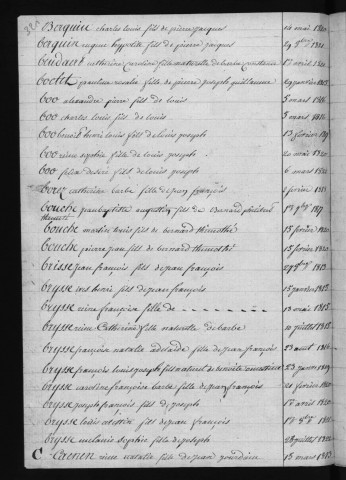 Berquin charles louis fils de pierre jacques 14 mai 1820.
berquin eugene hyppolite fils de pierre jacques 29 9bre 1821.
bendant catherine caroline fille naturelle de barbe constance 17 avril 1820.
boctet pauline natalie fille de pierre joseph guillaume 29 janvier 1815
boo alexandre pierre fils de louis 5 mars 1816
boo charles louis fils de louis 5 mars 1816
boo benoit henri louis fils de louis joseph 13 fevrier 1819
boo reine sophie fille de louis joseph 20 mai 1820
boo felix desiré fils de louis joseph 6 mars 1822
borez catherine barbe fille de jean françois 2 fevrier 1813
bouche jeanbaptiste augustin fils de Bernard
thimoté
bouche martin louis fils de bernard thimothé 15 fevrier 1820
bouche pierre jean fils de bernard thimothé 15 fevrier 1820
brisse jean francois fils de jean françois 27 9bre 1813
brysse henri fils de jean françois 15 janvier 1815
brysse reine françoise fille de 13 mai 1815
brysse reine Catherine fille naturelle de barbe 10 juillet 1815
brysse françoise natalie adelaide fille de jean françois 23 aout 1816
brysse françois louis joseph fils naturel de benoite 23 janvier 1819
brysse caroline françoise barbe fille de jean françois 21 fevrier 1820
brysse joseph françois fils de joseph 17 avril 1820
brysse louis fils de jean françois
brysse melanie sophie fille de joseph 28 juillet 1822
C Caenen reine natalie fille de jean 15 mars 1813